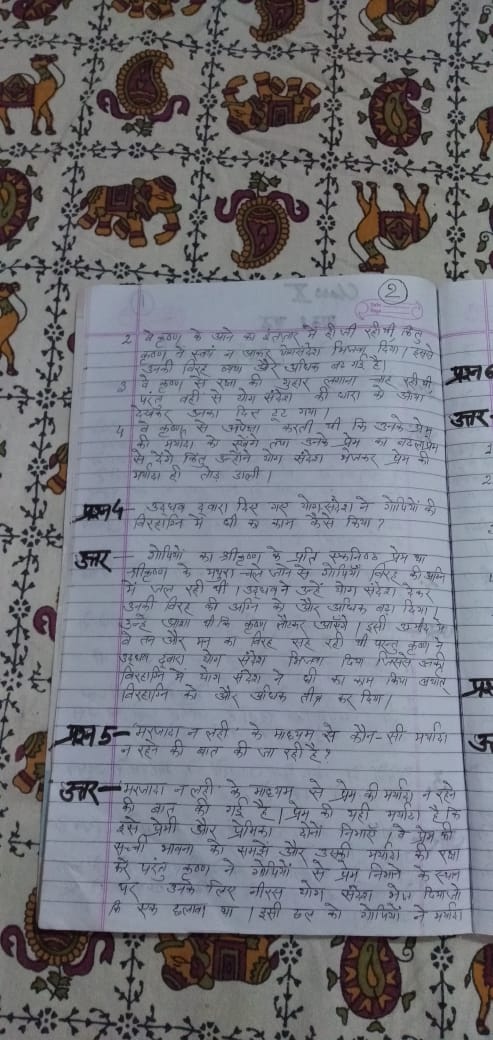 2
2 वे कृष्ण के आने का इंतज़ार में ही जी रही थी किंतु
कृष्ण ने स्वयं न आकर योगसंदेश भिजवा दिया। इससे
उनकी विरह व्यथा और अधिक बढ़ गई है।
3 वे कृष्ण से रक्षा की गुहार लगाना चाह रही थी,
परंतु वही से योग संदेश की धारा को आया
देखकर उनका दिल टूट गया।
4 वे कृष्ण से अपेक्षा करती थी कि उनके प्रेम
की मर्यादा को रखेंगे तथा उनके प्रेम का बदला प्रेम
से देंगे किंतु उन्होंने योग संदेश भेजकर प्रेम की
मर्यादा ही तोड़ डाली।
प्रश्न 4 — उद्धव द्वारा दिए गए योग संदेश ने गोपियों की
विरहाग्नि में घी का काम कैसे किया?
उत्तर — गोपियों का श्रीकृष्ण के प्रति एकनिष्ठ प्रेम था
श्रीकृष्ण के मथुरा चले जाने से गोपियाँ विरह की अग्नि
में जल रही थी। उद्धव ने उन्हें योग संदेश देकर
उनकी विरह की अग्नि को और अधिक बढ़ा दिया।
उन्हें आशा थी कि कृष्ण लौटकर आयेंगे। इसी उम्मीद में
वे तन और मन का विरह सह रही थी परन्तु कृष्ण ने
उद्धव द्वारा योग संदेश भिजवा दिया जिससे उनकी
विरहाग्नि में योग संदेश ने घी का काम किया अर्थात्
विरहाग्नि को और अधिक तीव्र कर दिया।
प्रश्न 5 — 'मरजादा न लही' के माध्यम से कौन-सी मर्यादा
न रहने की बात की जा रही है?
उत्तर — 'मरजादा न लही' के माध्यम से प्रेम की मर्यादा न रहने
की बात की गई है। प्रेम की यही मर्यादा है कि
इसे प्रेमी और प्रेमिका दोनों निभाएँ। वे प्रेम की
सच्ची भावना को समझें और उसकी मर्यादा की रक्षा
करें परंतु कृष्ण ने गोपियों से प्रेम निभाने के स्थान
पर उनके लिए नीरस योग संदेश भेज दिया जो
कि एक छलावा था। इसी छल को गोपियों ने मर्यादा
प्रश्न 6
उत्तर
1
2